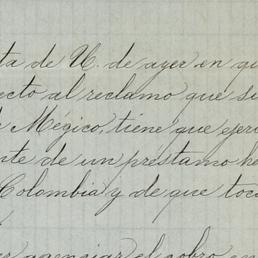 ta de U. de ayer en qu
ecto al reclamo que si
Mégico, tiene que ejer
te de un préstamo he
Colombia y de que toc
agenciar el cobro en